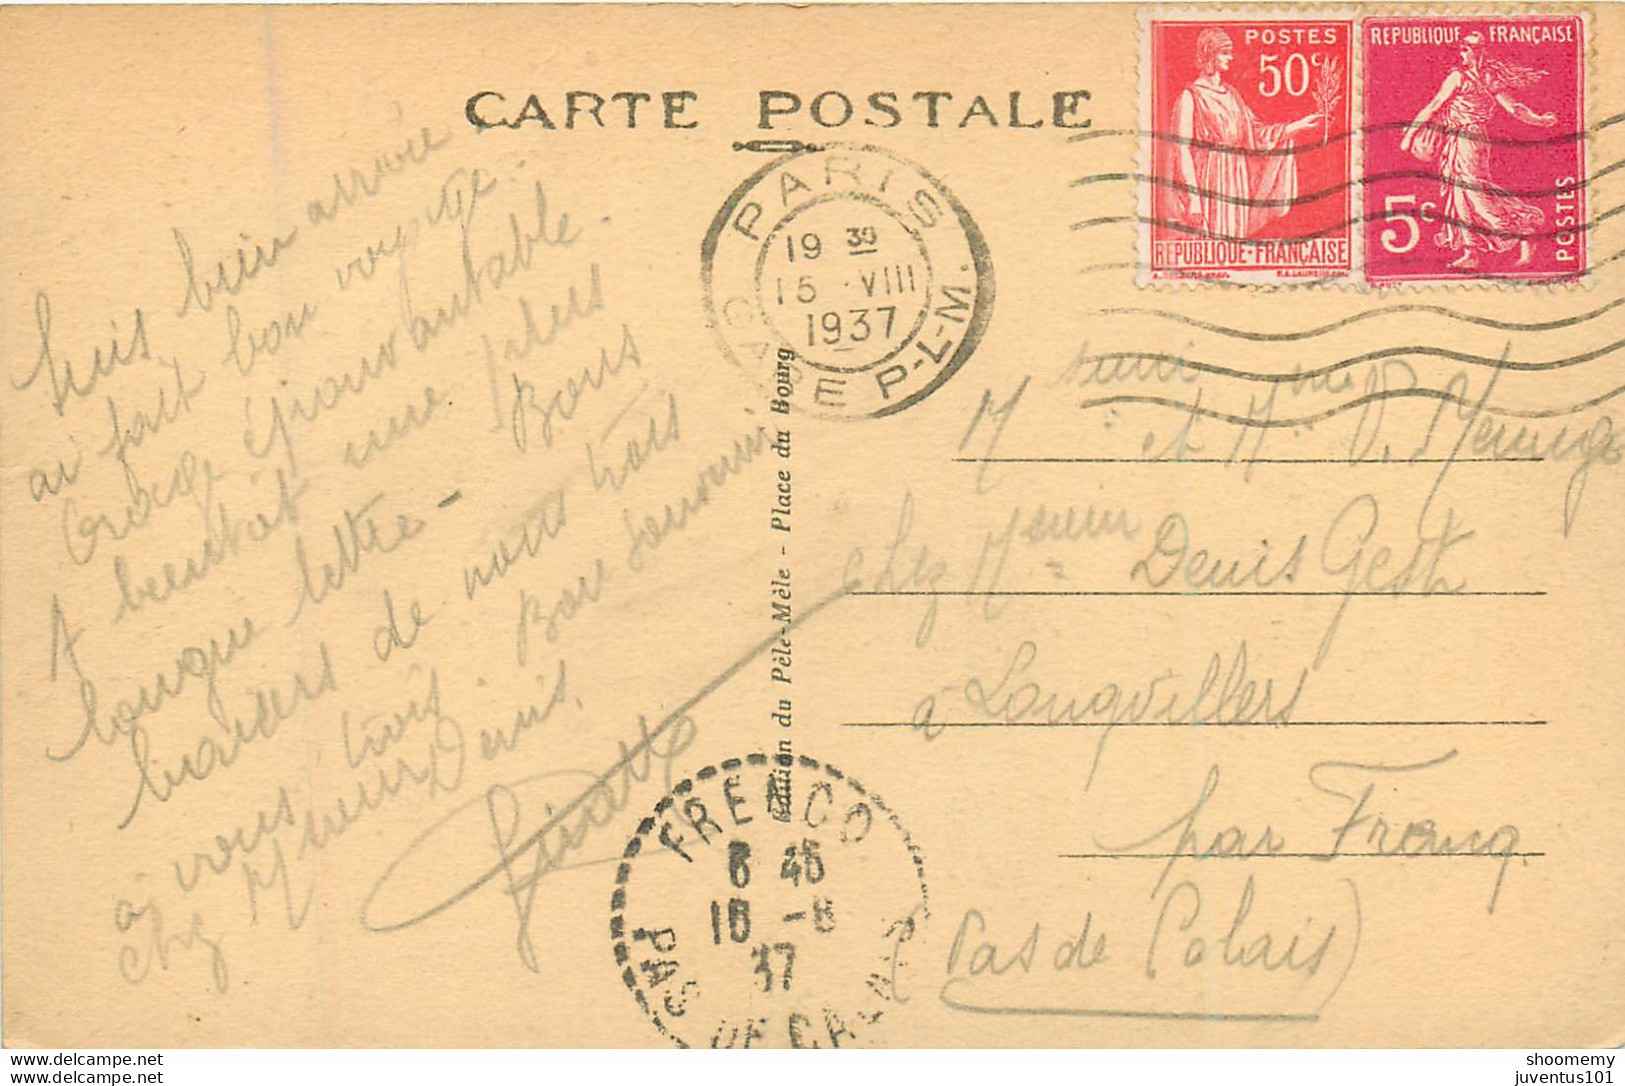 CARTE POSTALE
POSTES
50c
RÉPUBLIQUE-FRANÇAISE
REPUBLIQUE FRANÇAISE
5c
POSTES
PARIS
19 30
15 VIII
1937
GARE P-L-M.
Edition du Pêle-Mêle - Place du Bourg
Suis bien arrivée
ai fait bon voyage.
Orage épouvantable
A bientôt une plus
longue lettre - Bons
baisers de nous trois
à vous trois Bon souvenir
chez Mr Denis.
Ginette
M et Mme P.
chez Monsieur Denis Gest
à Longvillers
par Frencq
(Pas de Calais)
FRENCQ
8 45
16 -8
37
PAS DE CALAIS
shoomemy
juventus101